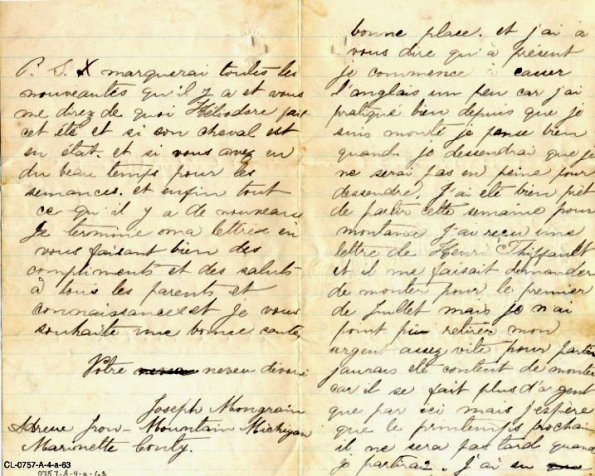 P. S. X marquerai toutes les
nouveautes qu'il y a et vous
me direz de quoi Héliodore fait
cet été et si son cheval est
en état. et si vous avez eu
du beau temps pour les
semances. et enfin tout
ce qu'il y a de nouveau
Je termine ma lettre en
vous faisant bien des
compliments et des saluts
à tous les parents et
connaissances et je vous
souhaite une bonne santé
Votre neveu devoué
Joseph Mongrain
Adresse Iron Mountain Michigan
Marionette Conty.
CL-0757-A-4-a-63
0757-A-4-a-63
bonne place. et j'ai à
vous dire qu'à présent
je commence à casser
l'anglais un peu car j'ai
pratiqué bien depuis que je
suis monté je pense bien
quand je dessendrai que je
ne serai pas en peine pour
dessendre? J'ai été bien prêt
de partir cette semaine pour
montana J'ai reçu une
lettre de Henri Thiffault
et il me faisait demander
de monter pour le premier
de Juillet mais je n'ai
point pu retirer mon
argent assez vite pour partir
jaurais été content de monter
car il se fait plus d'argent
que par ici mais j'espère
que le printemps prochain
il ne sera pas tard quand
je partirai. J'ai eu